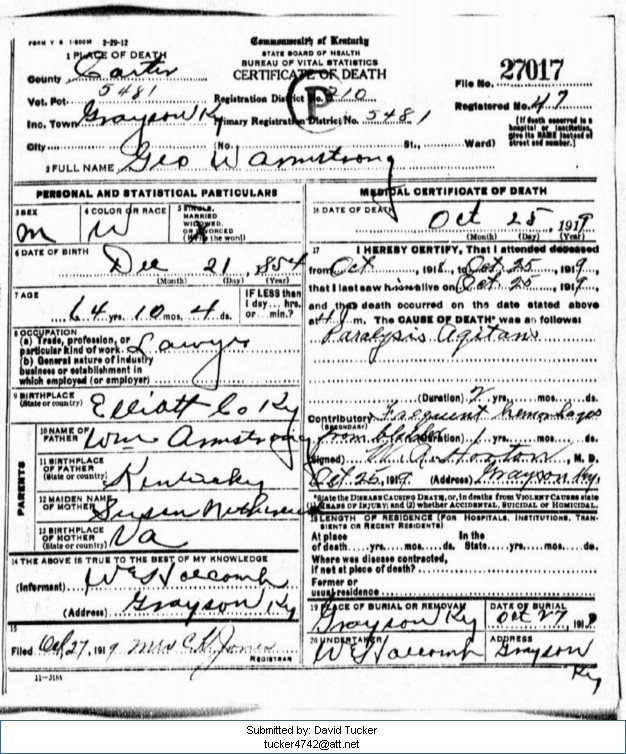 FORM V S 1-500M 2-29-12
Commonwealth of Kentucky
STATE BOARD OF HEALTH
BUREAU OF VITAL STATISTICS
CERTIFICATE OF DEATH
1 PLACE OF DEATH
County Carter
Vot. Pct. 5481
Inc. Town Grayson Ky
City (No. St., Ward)
Registration District No. 210
P
Primary Registration District No. 5481
File No. 27017
Registered No. 47
[If death occurred in a hospital or institution, give its NAME instead of street and number.]
2 FULL NAME Geo W Armstrong
PERSONAL AND STATISTICAL PARTICULARS
3 SEX
m
4 COLOR OR RACE
W
5 SINGLE,
MARRIED
WIDOWED,
OR DIVORCED
(Write the word)
6 DATE OF BIRTH
Dec 21, 1854
(Month) (Day) (Year)
7 AGE
64 yrs. 10 mos. 4 ds.
IF LESS than
1 day... hrs.
or... min.?
8 OCCUPATION
(a) Trade, profession, or
particular kind of work. Lawyer
(b) General nature of industry
business or establishment in
which employed (or employer)
9 BIRTHPLACE
(State or country) Elliott Co Ky
PARENTS
10 NAME OF
FATHER Wm Armstrong
11 BIRTHPLACE
OF FATHER
(State or country) Kentucky
12 MAIDEN NAME
OF MOTHER Susan
13 BIRTHPLACE
OF MOTHER
(State or country) Va
14 THE ABOVE IS TRUE TO THE BEST OF MY KNOWLEDGE
(Informant) W E Horcomb
(Address) Grayson Ky
15
Filed Oct 27, 1919 Mrs C. Jones
REGISTRAR
11-3184
MEDICAL CERTIFICATE OF DEATH
16 DATE OF DEATH
Oct 25, 1919
(Month) (Day) (Year)
17 I HEREBY CERTIFY, That I attended deceased
from Oct, 1918, to Oct, 25, 1919,
that I last saw him alive on Oct, 25, 1919,
and that death occurred on the date stated above
at m. The CAUSE OF DEATH* was as follows:
Paralysis Agitans
(Duration) yrs. mos. ds.
Contributory Frequent hemorhages
(SECONDARY)
from bladder (Duration) yrs. mos. ds.
(Signed) W. A. Horton, M. D.
Oct, 25, 1919 (Address) Grayson Ky.
*State the DISEASE CAUSING DEATH, or, in deaths from VIOLENT CAUSES state
MEANS OF INJURY; and (2) whether ACCIDENTAL, SUICIDAL or HOMICIDAL.
18 LENGTH OF RESIDENCE (FOR HOSPITALS, INSTITUTIONS, TRAN-
SIENTS OR RECENT RESIDENTS)
At place
of death....yrs....mos....ds.
In the
State....yrs....mos....ds.
Where was disease contracted,
if not at place of death?
Former or
usual residence
19 PLACE OF BURIAL OR REMOVAL
Grayson Ky
DATE OF BURIAL
Oct 27, 1919
20 UNDERTAKER
W E Horcomb
ADDRESS
Grayson
Ky
Submitted by: David Tucker
tucker4742@att.net